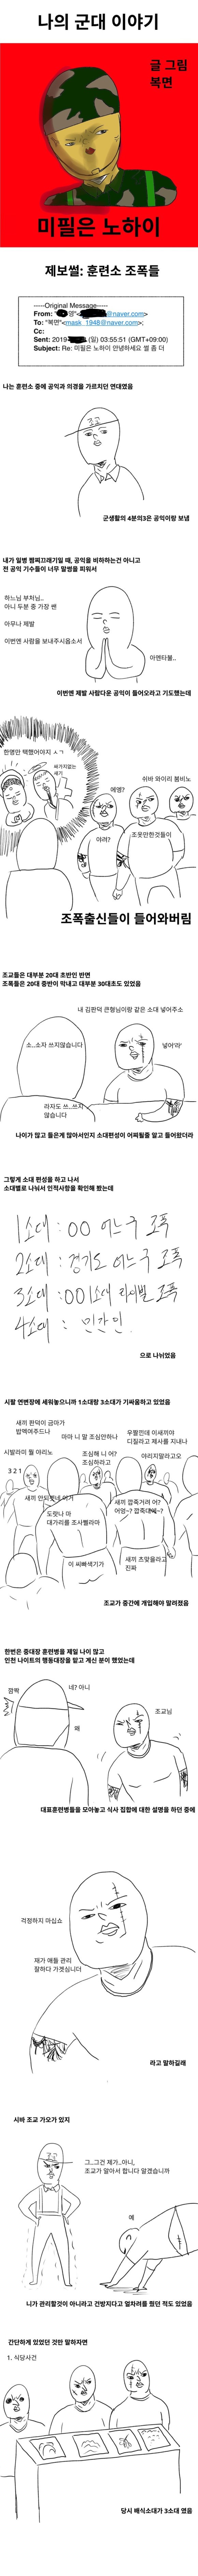 나의 군대 이야기
글 그림
복면
미필은 노하이
제보썰: 훈련소 조폭들
-----Original Message-----
From: 영 @naver.com>
To: "복면"<mask_1948@naver.com>;
Cc:
Sent: 2019- (일) 03:55:51 (GMT+09:00)
Subject: Re: 미필은 노하이 안녕하세요 썰 좀 더
나는 훈련소 중에 공익과 의경을 가르치던 연대였음
조교
군생활의 4분의3은 공익이랑 보냄
내가 일병 짬찌끄래기일 때, 공익을 비하하는건 아니고
전 공익 기수들이 너무 말썽을 피워서
하느님 부처님..
아니 두분 중 가장 쎈
아무나 제발
이번엔 사람을 보내주시옵소서
아멘타불..
이번엔 제발 사람다운 공익이 들어오라고 기도했는데
한명만 택했어야지 ㅅㄱ
싸가지없는
새기
메엥?
쉬바 와이리 붐비노
야려?
조옷만한것들이
조폭출신들이 들어와버림
조교들은 대부분 20대 초반인 반면
조폭들은 20대 중반이 막내고 대부분 30대초도 있었음
내 김판덕 큰형님이랑 같은 소대 넣어주소
소..소자 쓰지않습니다
넣어'라'
라자도 쓰..쓰지
않습니다
나이가 많고 들은게 많아서인지 소대편성이 어찌될줄 알고 들어왔더라
그렇게 소대 편성을 하고 나서
소대별로 나눠서 인적사항을 확인해 봤는데
1소대 : 00 어느구 조폭
2소대 : 경기도 어느구 조폭
3소대 : 001소대 라이벌 조폭
4소대 : 민간인
으로 나뉘었음
시팔 연변장에 세워놓으니까 1소대랑 3소대가 기싸움하고 있었음
새끼 판덕이 금마가
밥맥여주드나
마아 니 말 조심안하나
우짤낀데 이새끼야
디질라고 제사를 지내나
시발라이 뭘 야리노
조심해 니 어?
조심하라고
야리지말라고오
3 2 1
새끼 안되겟네 여거
새끼 깝죽거려 어?
도랏나 마
대가리를 조사삘라마
이 씨빠색기가
새끼 츠맞을라고
진짜
조교가 중간에 개입해야 말려졌음
한번은 중대장 훈련병을 제일 나이 많고
인천 나이트의 행동대장을 맡고 계신 분이 했었는데
깜짝
네? 아니
왜
조교님
대표훈련병들을 모아놓고 식사 집합에 대한 설명을 하던 중에
걱정하지 마십쇼
재가 애들 관리
잘하다 가겟심니더
라고 말하길래
시바 조교 가오가 있지
조교
그..그건 제가..아니,
조교가 알아서 합니다 알겠습니까
예
니가 관리할것이 아니라고 건방지다고 얼차려를 줬던 적도 있었음
간단하게 있었던 것만 말하자면
1. 식당사건
당시 배식소대가 3소대 였음